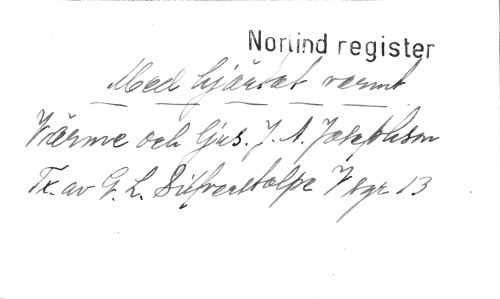 Norlind register
Med hjärtat varmt
Värme och ljus. J. A. Josephson
Tx. av G. L. Silfverstolpe V sgr 13